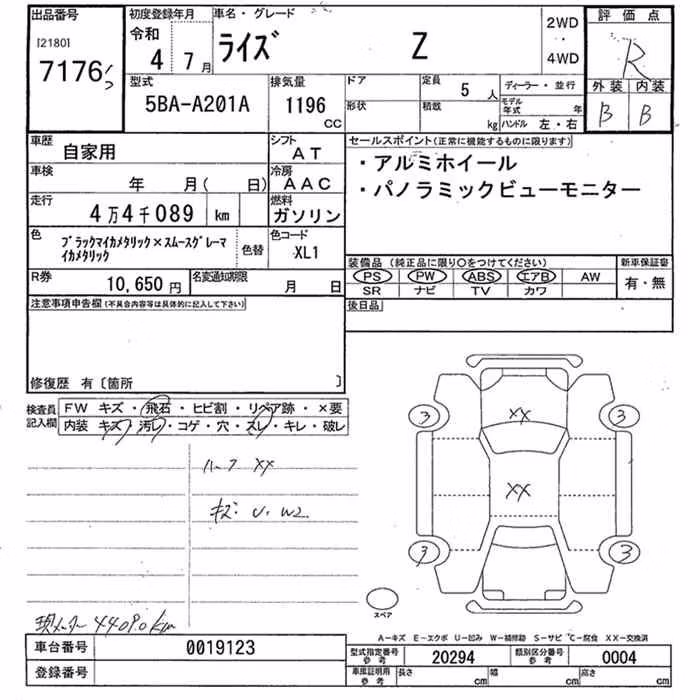 出品番号
[2180]
7176
初度登録年月
令和 4年 7月
車名・グレード
ライズ Z
2WD
・
4WD
評価点
R
外装 内装
B B
型式
5BA-A201A
排気量
1196
cc
ドア
形状
定員 5人
積載 kg
ディーラー・並行
モデル年式 年
ハンドル 左・右
車歴
自家用
シフト
AT
車検
年 月( 日)
冷房
AAC
走行
4万4千089 km
燃料
ガソリン
色
ブラックマイカメタリック×スムースグレーマイカメタリック
色替
色コード
XL1
R券
10,650円
名変通知期限
月 日
セールスポイント(正常に機能するものに限ります)
・アルミホイール
・パノラミックビューモニター
装備品 (純正品に限り○をつけてください)
PS PW ABS エアB AW
SR ナビ TV カワ
新車保証書
有・無
注意事項申告欄(不具合内容等は具体的に記入して下さい)
後日品
修復歴 有〔箇所 〕
検査員記入欄
FW キズ・飛石・ヒビ割・リペア跡・×要
内装 キズ・汚レ・コゲ・穴・スレ・キレ・破レ
ルーフ XX
キズ・U・W2
現メーター 44090km
XX
XX
3 3
3 3
スペア
A-キズ E-エクボ U-凹み W-補修跡 S-サビ C-腐食 XX-交換済
車台番号
0019123
登録番号
型式指定番号 参考
20294
類別区分番号 参考
0004
車庫証明用 参考
長さ cm
幅 cm
高さ cm